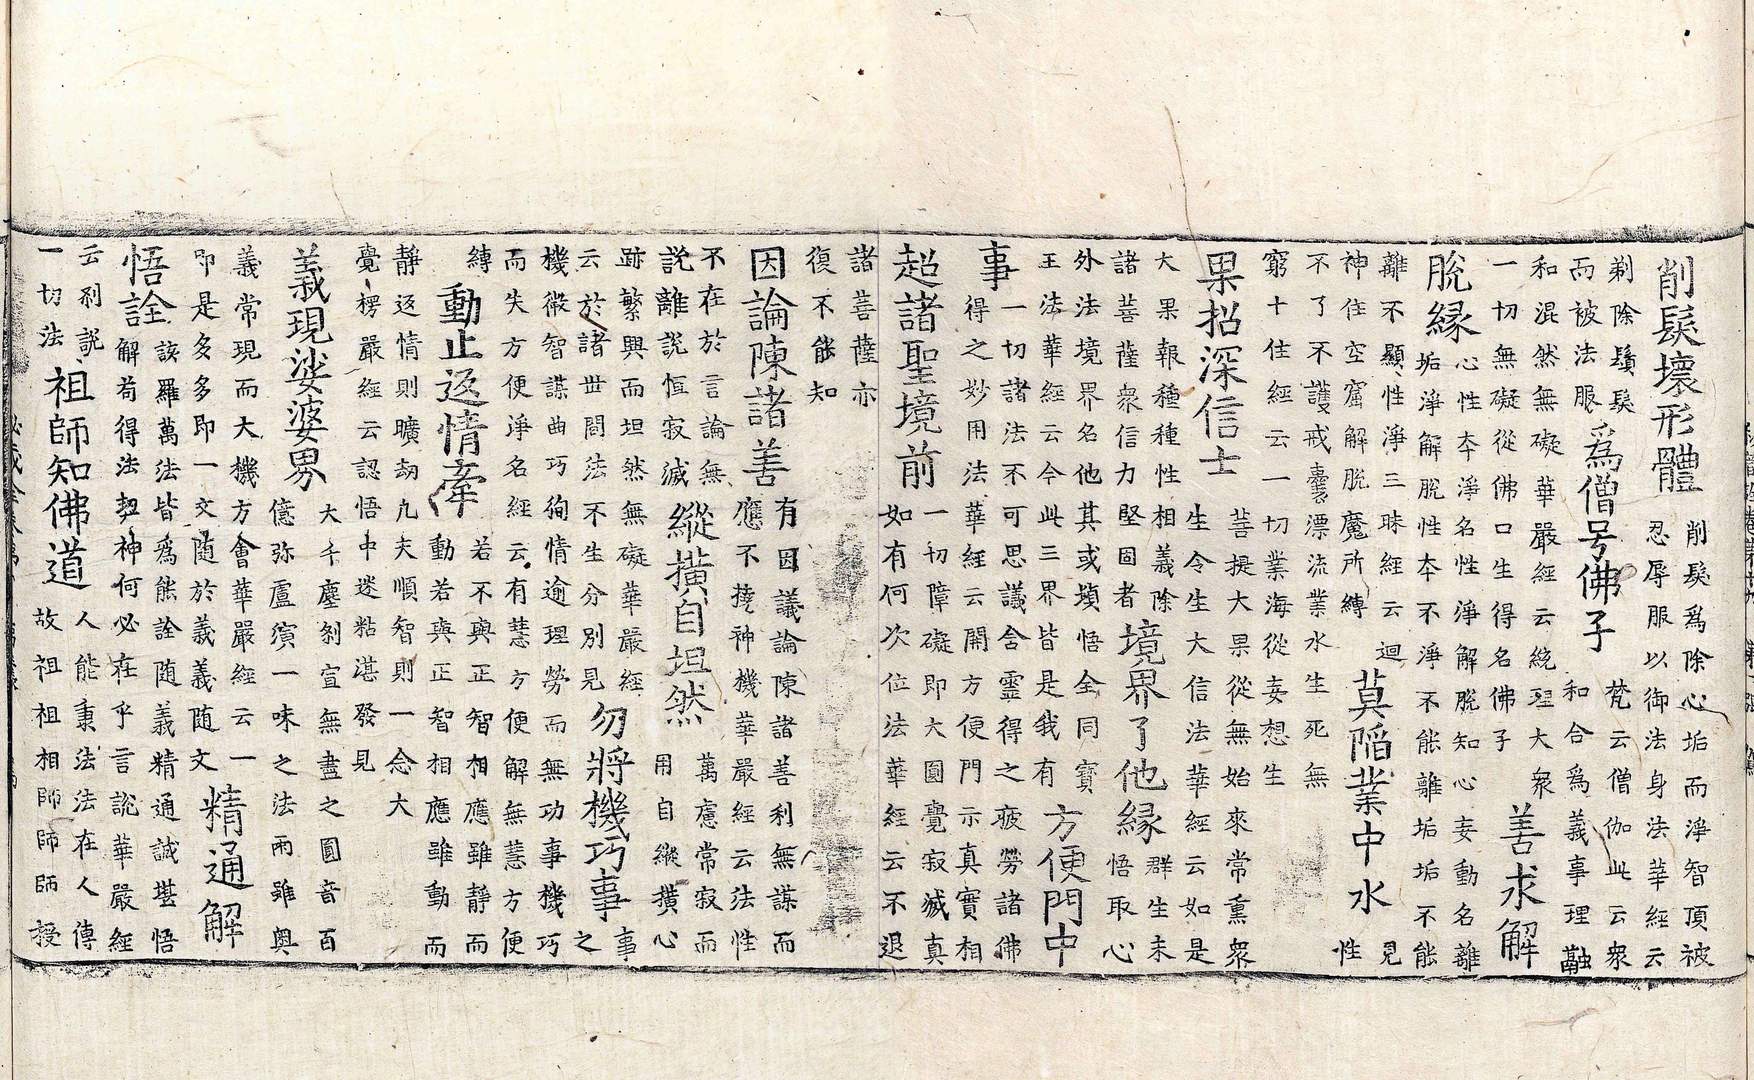 削髮壞形體
削髮爲除心垢而淨智頂被
忍辱服以御法身法華經云
剃除鬚髮
而被法服
爲僧号佛子
梵云僧伽此云衆
和合爲義事理融
和混然無礙華嚴經云統理大衆
一切無礙從佛口生得名佛子
善求解
脫緣
心性本淨名性淨解脫知心妄動名離
垢淨解脫性本不淨不能離垢垢不能
離不顯性淨三昧經云迴
神住空窟解脫魔所縛
莫陷業中水
見
性
不了不護戒囊漂流業水生死無
窮十住經云一切業海從妄想生
果招深信士
菩提大果從無始來常熏衆
生令生大信法華經云如是
大果報種種性相義除
諸菩薩衆信力堅固者
境界了他緣
群生未
悟取心
外法境界名他其或頓悟全同寶
王法華經云今此三界皆是我有
方便門中
事
一切諸法不可思議含靈得之疲勞諸佛
得之妙用法華經云開方便門示真實相
超諸聖境前
一切障礙即大圓覺寂滅真
如有何次位法華經云不退
諸菩薩亦
復不能知
因論陳諸善
有因議論陳諸善利無謀而
應不撓神機華嚴經云法性
不在於言論無
說離說恒寂滅
縱橫自坦然
萬慮常寂而
用自縱橫心
跡繁興而坦然無礙華嚴經
云於諸世間法不生分別見
勿將機巧事
事
之
機微智謀曲巧徇情逾理勞而無功事機巧
而失方便淨名經云有慧方便解無慧方便
縛
動止返情牽
若不與正智相應雖靜而
動若與正智相應雖動而
靜返情則曠劫九夫順智則一念大
覺楞嚴經云認悟中迷粘湛發見
義現娑婆界
大千塵刹宣無盡之圓音百
億弥盧演一味之法雨雖奧
義常現而大機方會華嚴經云一
即是多多即一文隨於義義隨文
精通解
悟詮
該羅萬法皆爲能詮随義精通誠堪悟
解苟得法契神何必在乎言說華嚴經
云刹說
一切法
祖師知佛道
人能秉法法在人傳
故祖祖祖相師師師授